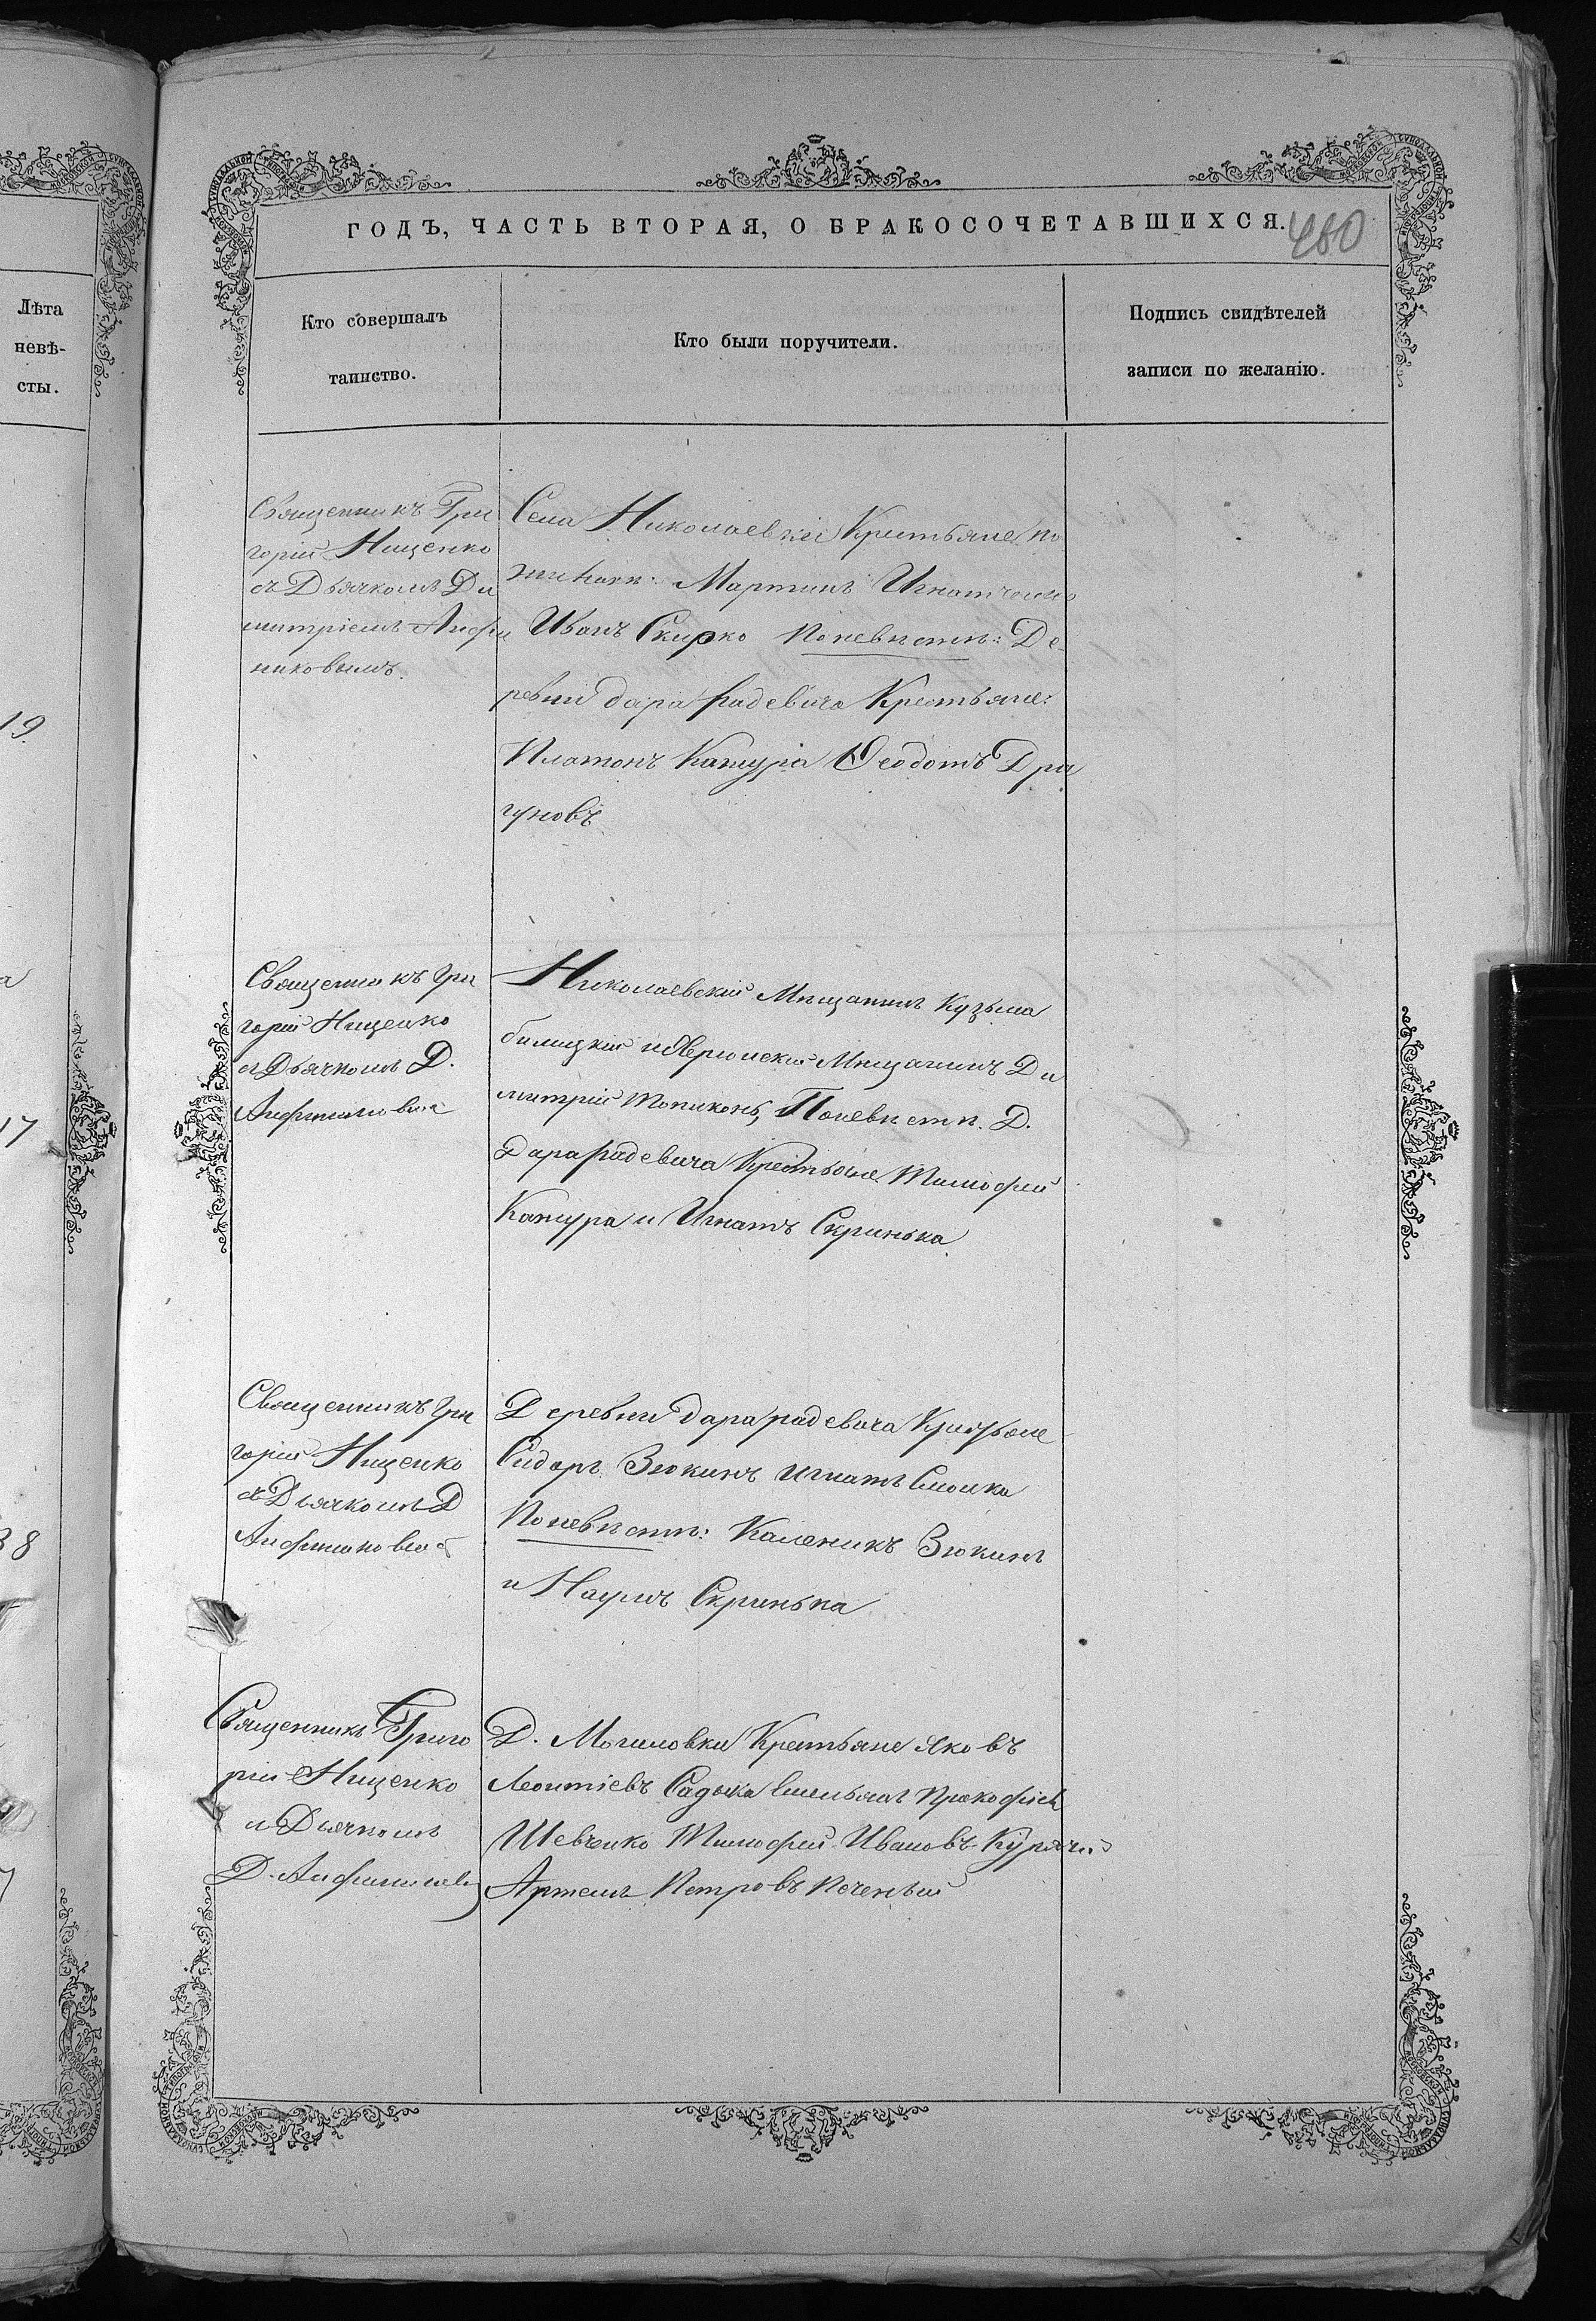 Лѣта
невѣ-
сты.
19.
а
17
38
7
ГОДЪ, ЧАСТЬ ВТОРАЯ, О БРАКОСОЧЕТАВШИХСЯ.
480
Кто совершалъ
таинство.
Кто были поручители.
Подпись свидѣтелей
записи по желанію.
Священникъ Гри
горій Нищенко
съ Дьячкомъ Ди
митріемъ Анфи
Села Николаевки Крестьяне по
женихѣ: Мартинъ Игнатченко
Иванъ Скирко По невѣстѣ: Де-
ревни Дарарадевича Крестьяне:
Платонъ Кажура Ѳеодотъ Дра
гуновъ
Священникъ Гри
горій Нищенко
съ Дьячкомъ Д.
Николаевскій Мѣщанинъ Кузьма
билицкій Мѣщанинъ Ди
митрій По невѣстѣ. Д.
Дарарадевича Крестьяне Тимофей
Кажура и Игнатъ Скринька
Священникъ Гри
горій Нищенко
съ Дьячкомъ Д
Деревни Дарарадевича Крестьяне
Сидоръ Зюкинъ Игнатъ
По невѣстѣ: Каленикъ Зюкинъ
и Наумъ Скринька
Священникъ Григо
рій Нищенко
съ Дьячкомъ
Д.
Д. Могиловки Крестьяне Яковъ
Леонтіевъ Садыка Емельянъ Прокофіевъ
Шевченко Тимофей Ивановъ
Артемъ Петровъ